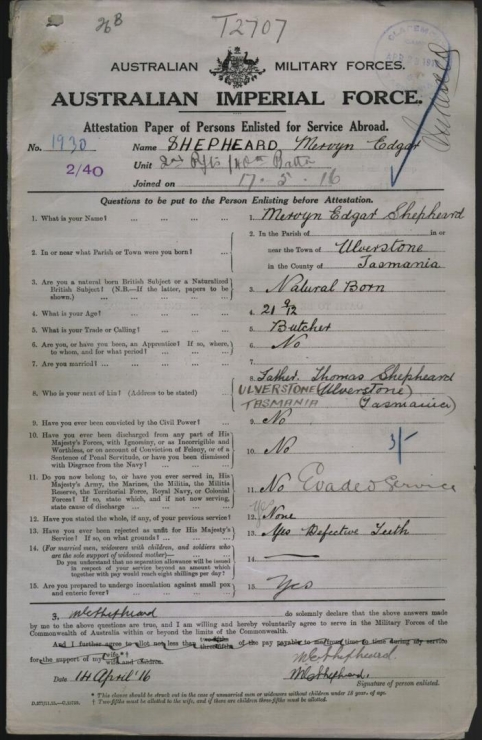 26B T2707
AUSTRALIAN MILITARY FORCES.
AUSTRALIAN IMPERIAL FORCE.
Attestation Paper of Persons Enlisted for Service Abroad.
No. 1930 Name SHEPHEARD Mervyn Edgar
2/40 Unit 2nd Rfts / 40th Battn
Joined on 17-5-16
Questions to be put to the Person Enlisting before Attestation.
1. What is your Name? ... 1. Mervyn Edgar Shepheard
2. In or near what Parish or Town were you born? ... 2. In the Parish of in or
near the Town of Ulverstone
in the County of Tasmania
3. Are you a natural born British Subject or a Naturalized
British Subject? (N.B.—If the latter, papers to be
shown.) ... 3. Natural Born
4. What is your Age? ... 4. 21 9/12
5. What is your Trade or Calling? ... 5. Butcher
6. Are you, or have you been, an Apprentice? If so, where,
to whom, and for what period? ... 6. No
7. Are you married? ... 7.
8. Who is your next of kin? (Address to be stated) ... 8. Father. Thomas Shepheard
ULVERSTONE (Ulverstone)
TASMANIA Tasmania)
9. Have you ever been convicted by the Civil Power? ... 9. No
10. Have you ever been discharged from any part of His
Majesty's Forces, with Ignominy, or as Incorrigible and
Worthless, or on account of Conviction of Felony, or of a
Sentence of Penal Servitude, or have you been dismissed
with Disgrace from the Navy? ... 10. No 3/-
11. Do you now belong to, or have you ever served in, His
Majesty's Army, the Marines, the Militia, the Militia
Reserve, the Territorial Force, Royal Navy, or Colonial
Forces? If so, state which, and if not now serving,
state cause of discharge ... 11. No Evaded Service
12. Have you stated the whole, if any, of your previous service? 12. None
13. Have you ever been rejected as unfit for His Majesty's
Service? If so, on what grounds? ... 13. Yes Defective Teeth
14. (For married men, widowers with children, and soldiers who
are the sole support of widowed mother)—
Do you understand that no separation allowance will be issued
in respect of your service beyond an amount which
together with pay would reach eight shillings per day? 14. —
15. Are you prepared to undergo inoculation against small pox
and enteric fever? ... 15. Yes
I, M E Shepheard do solemnly declare that the above answers made
by me to the above questions are true, and I am willing and hereby voluntarily agree to serve in the Military Forces of the
Commonwealth of Australia within or beyond the limits of the Commonwealth.
And I further agree to allot not less than two-fifths three-fifths of the pay payable to me from time to time during my service
for the support of my wife*† wife and children. M E Shepheard
Date 14 April '16 M E Shepheard.
Signature of person enlisted.
* This clause should be struck out in the case of unmarried men or widowers without children under 18 years of age.
† Two-fifths must be allotted to the wife, and if there are children three-fifths must be allotted.